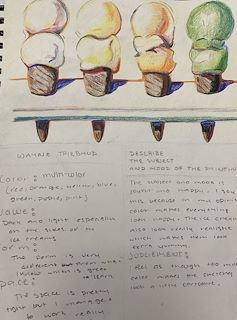 WAYNE THIEBAUD
Color: multi-color
(red, orange, yellow, blue,
green, purple, pink)
Value:
Dark and light especially
on the sides of the
ice creams
Form:
The form is very
different
which is great
Space:
The space is pretty
tight but I manage
to work really
DESCRIBE
THE SUBJECT
AND MOOD OF THE PAINTING
The subject and mood is
joyful and happy. I say
this because in my opinion
color makes everything
look happy. The ice creams
also look really realistic
which makes them look
extra yummy.
JUDGEMENT:
I feel as though
color makes the
look a little cartoonie.